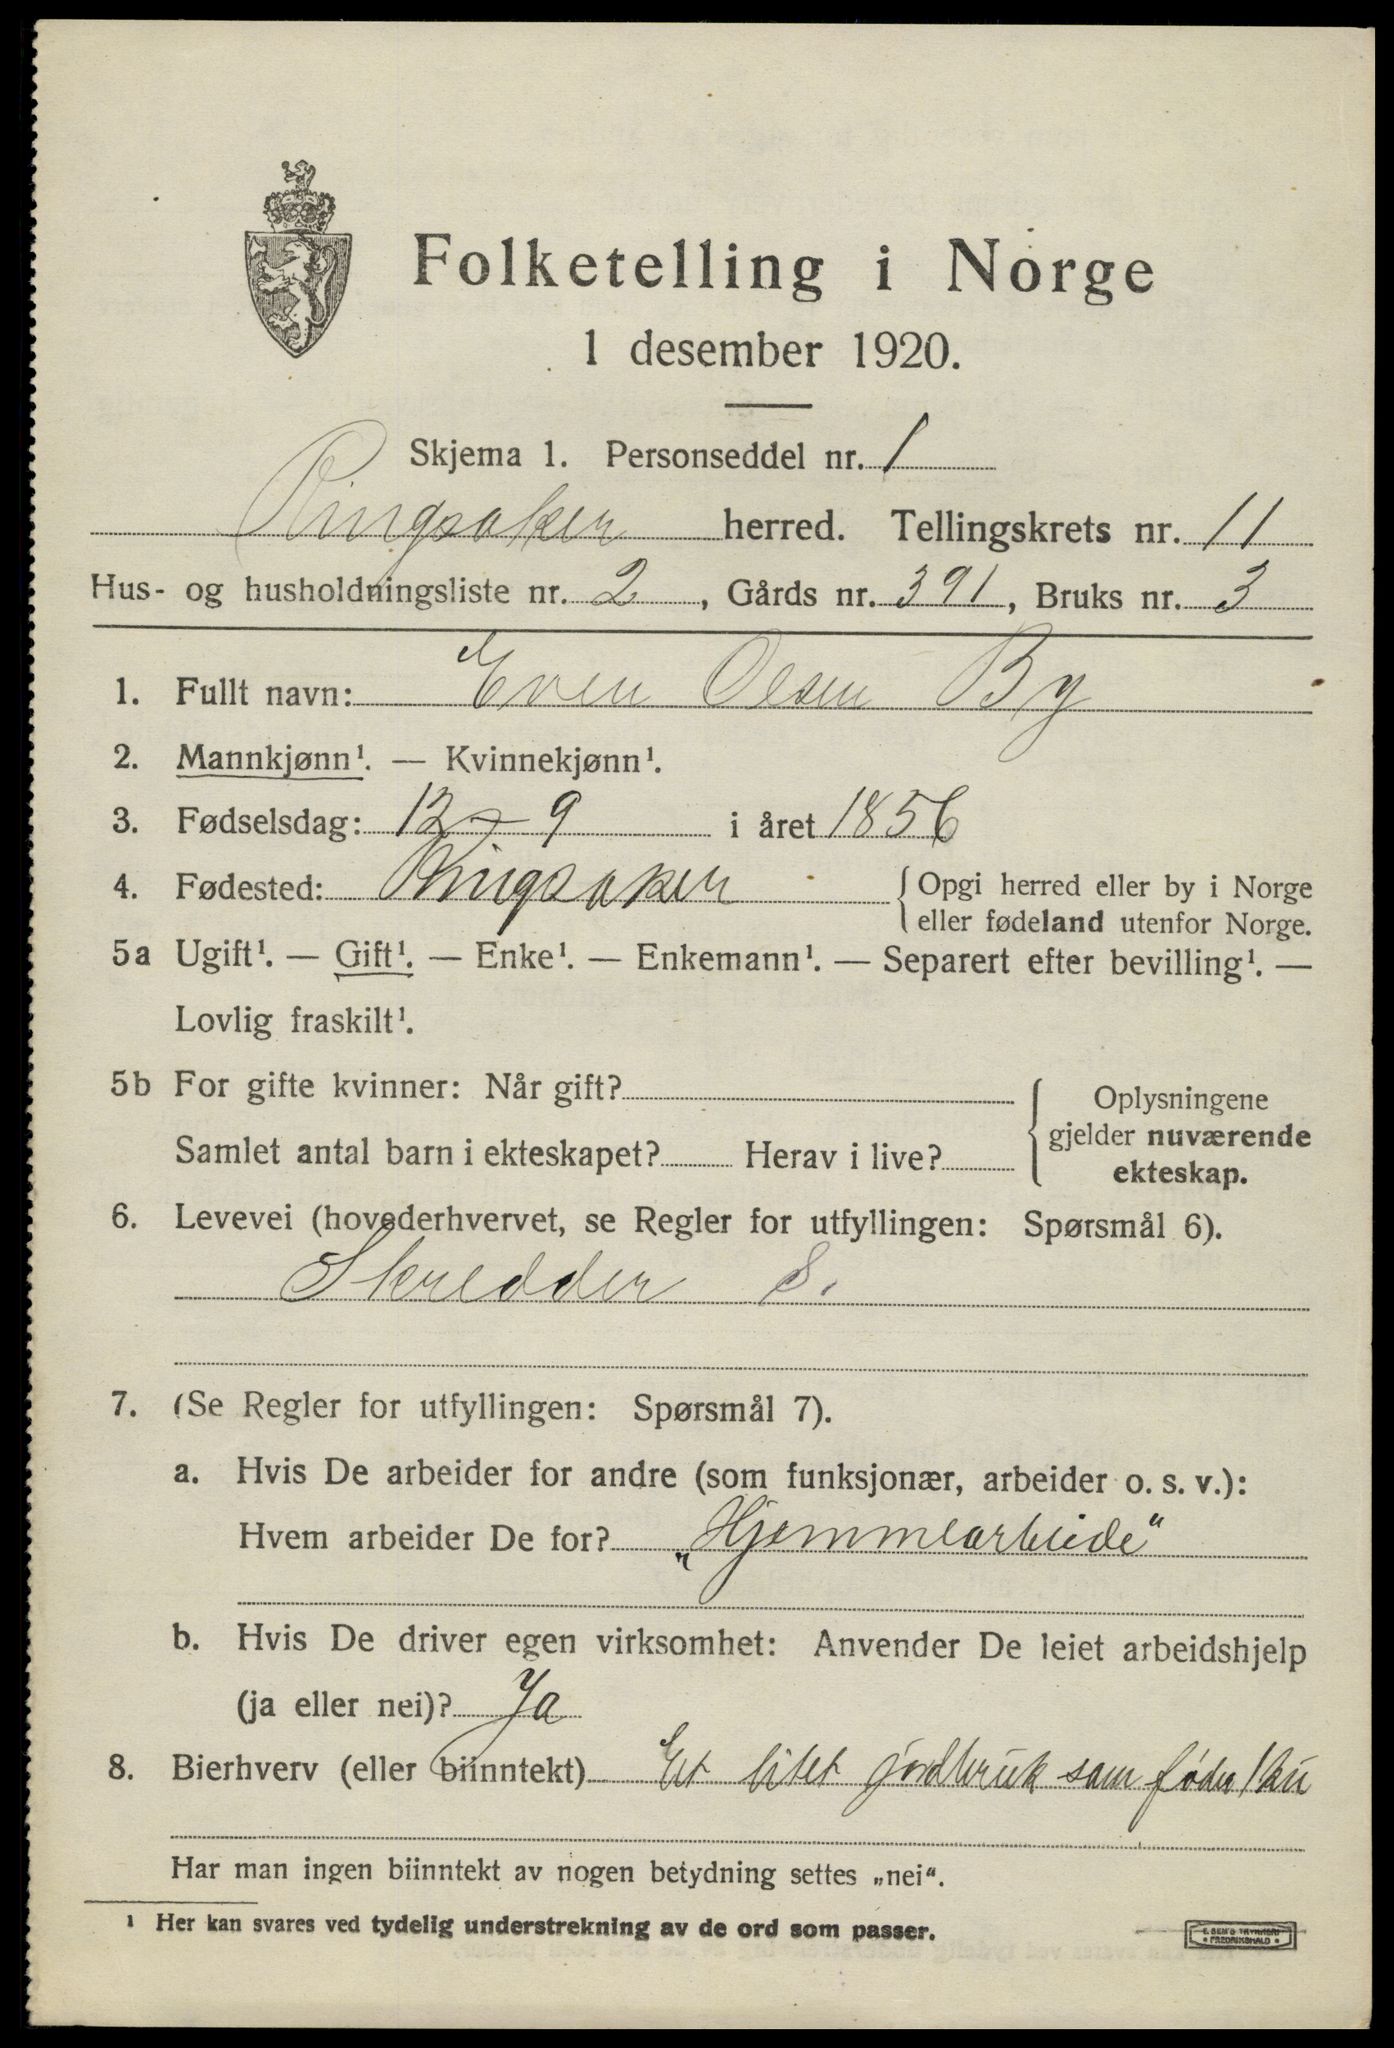 Folketelling i Norge
1 desember 1920.
Skjema 1. Personseddel nr. 1
Ringsaker herred. Tellingskrets nr. 11
Hus- og husholdningsliste nr. 2, Gårds nr. 391, Bruks nr. 3
1. Fullt navn: Even Olsen By
2. Mannkjønn¹. — Kvinnekjønn¹.
3. Fødselsdag: 12 - 9 i året 1856
4. Fødested: Ringsaker { Opgi herred eller by i Norge
eller fødeland utenfor Norge.
5a Ugift¹. — Gift¹. — Enke¹. — Enkemann¹. — Separert efter bevilling¹. —
Lovlig fraskilt¹.
5b For gifte kvinner: Når gift?
Samlet antal barn i ekteskapet? Herav i live?
{ Oplysningene
gjelder nuværende
ekteskap.
6. Levevei (hovederhvervet, se Regler for utfyllingen: Spørsmål 6).
Skredder S.
7. (Se Regler for utfyllingen: Spørsmål 7).
a. Hvis De arbeider for andre (som funksjonær, arbeider o. s. v.):
Hvem arbeider De for? „Hjemmearbeide"
b. Hvis De driver egen virksomhet: Anvender De leiet arbeidshjelp
(ja eller nei)? Ja
8. Bierhverv (eller biinntekt) Et litet jordbruk som føder 1 ku
Har man ingen biinntekt av nogen betydning settes „nei".
¹ Her kan svares ved tydelig understrekning av de ord som passer.
FREDRIKSHALD